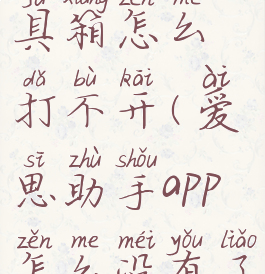 jù xiāng zěn me
具箱怎么
dǎ bù kāi ài
打不开(爱
sī zhù shǒu
思助手app
zěn me méi yǒu liǎo
怎么没有了